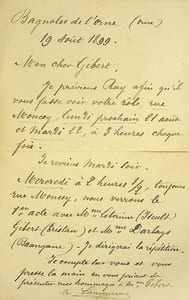 Bagnoles de l'Orne (Orne)
19 Août 1899.
Mon cher Gibert,
Je préviens Ray afin qu'il
vous fasse voir votre rôle rue
Moncey, lundi prochain 21 août
et Mardi 22, à 3 heures chaque
fois.
Je reviens Mardi soir.
Mercredi à 2 heures 1/2, toujours
rue Moncey, nous verrons le
1er acte avec Mme Litvinne (Iseult)
Gibert (Tristan) et Mme Darlays
(Brangæne) - Je dirigerai la répétition.
Je compte sur vous et vous
presse la main en vous priant de
présenter mes hommages à Mme Gibert
C. Lamoureux